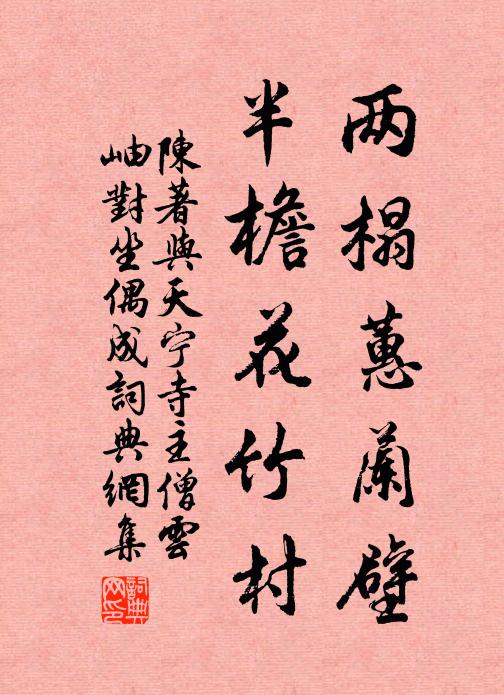 两榻蕙蘭壁
半檐花竹村
陳著與天宁寺主僧雲
岫對坐偶成詞典網集
詞典網印